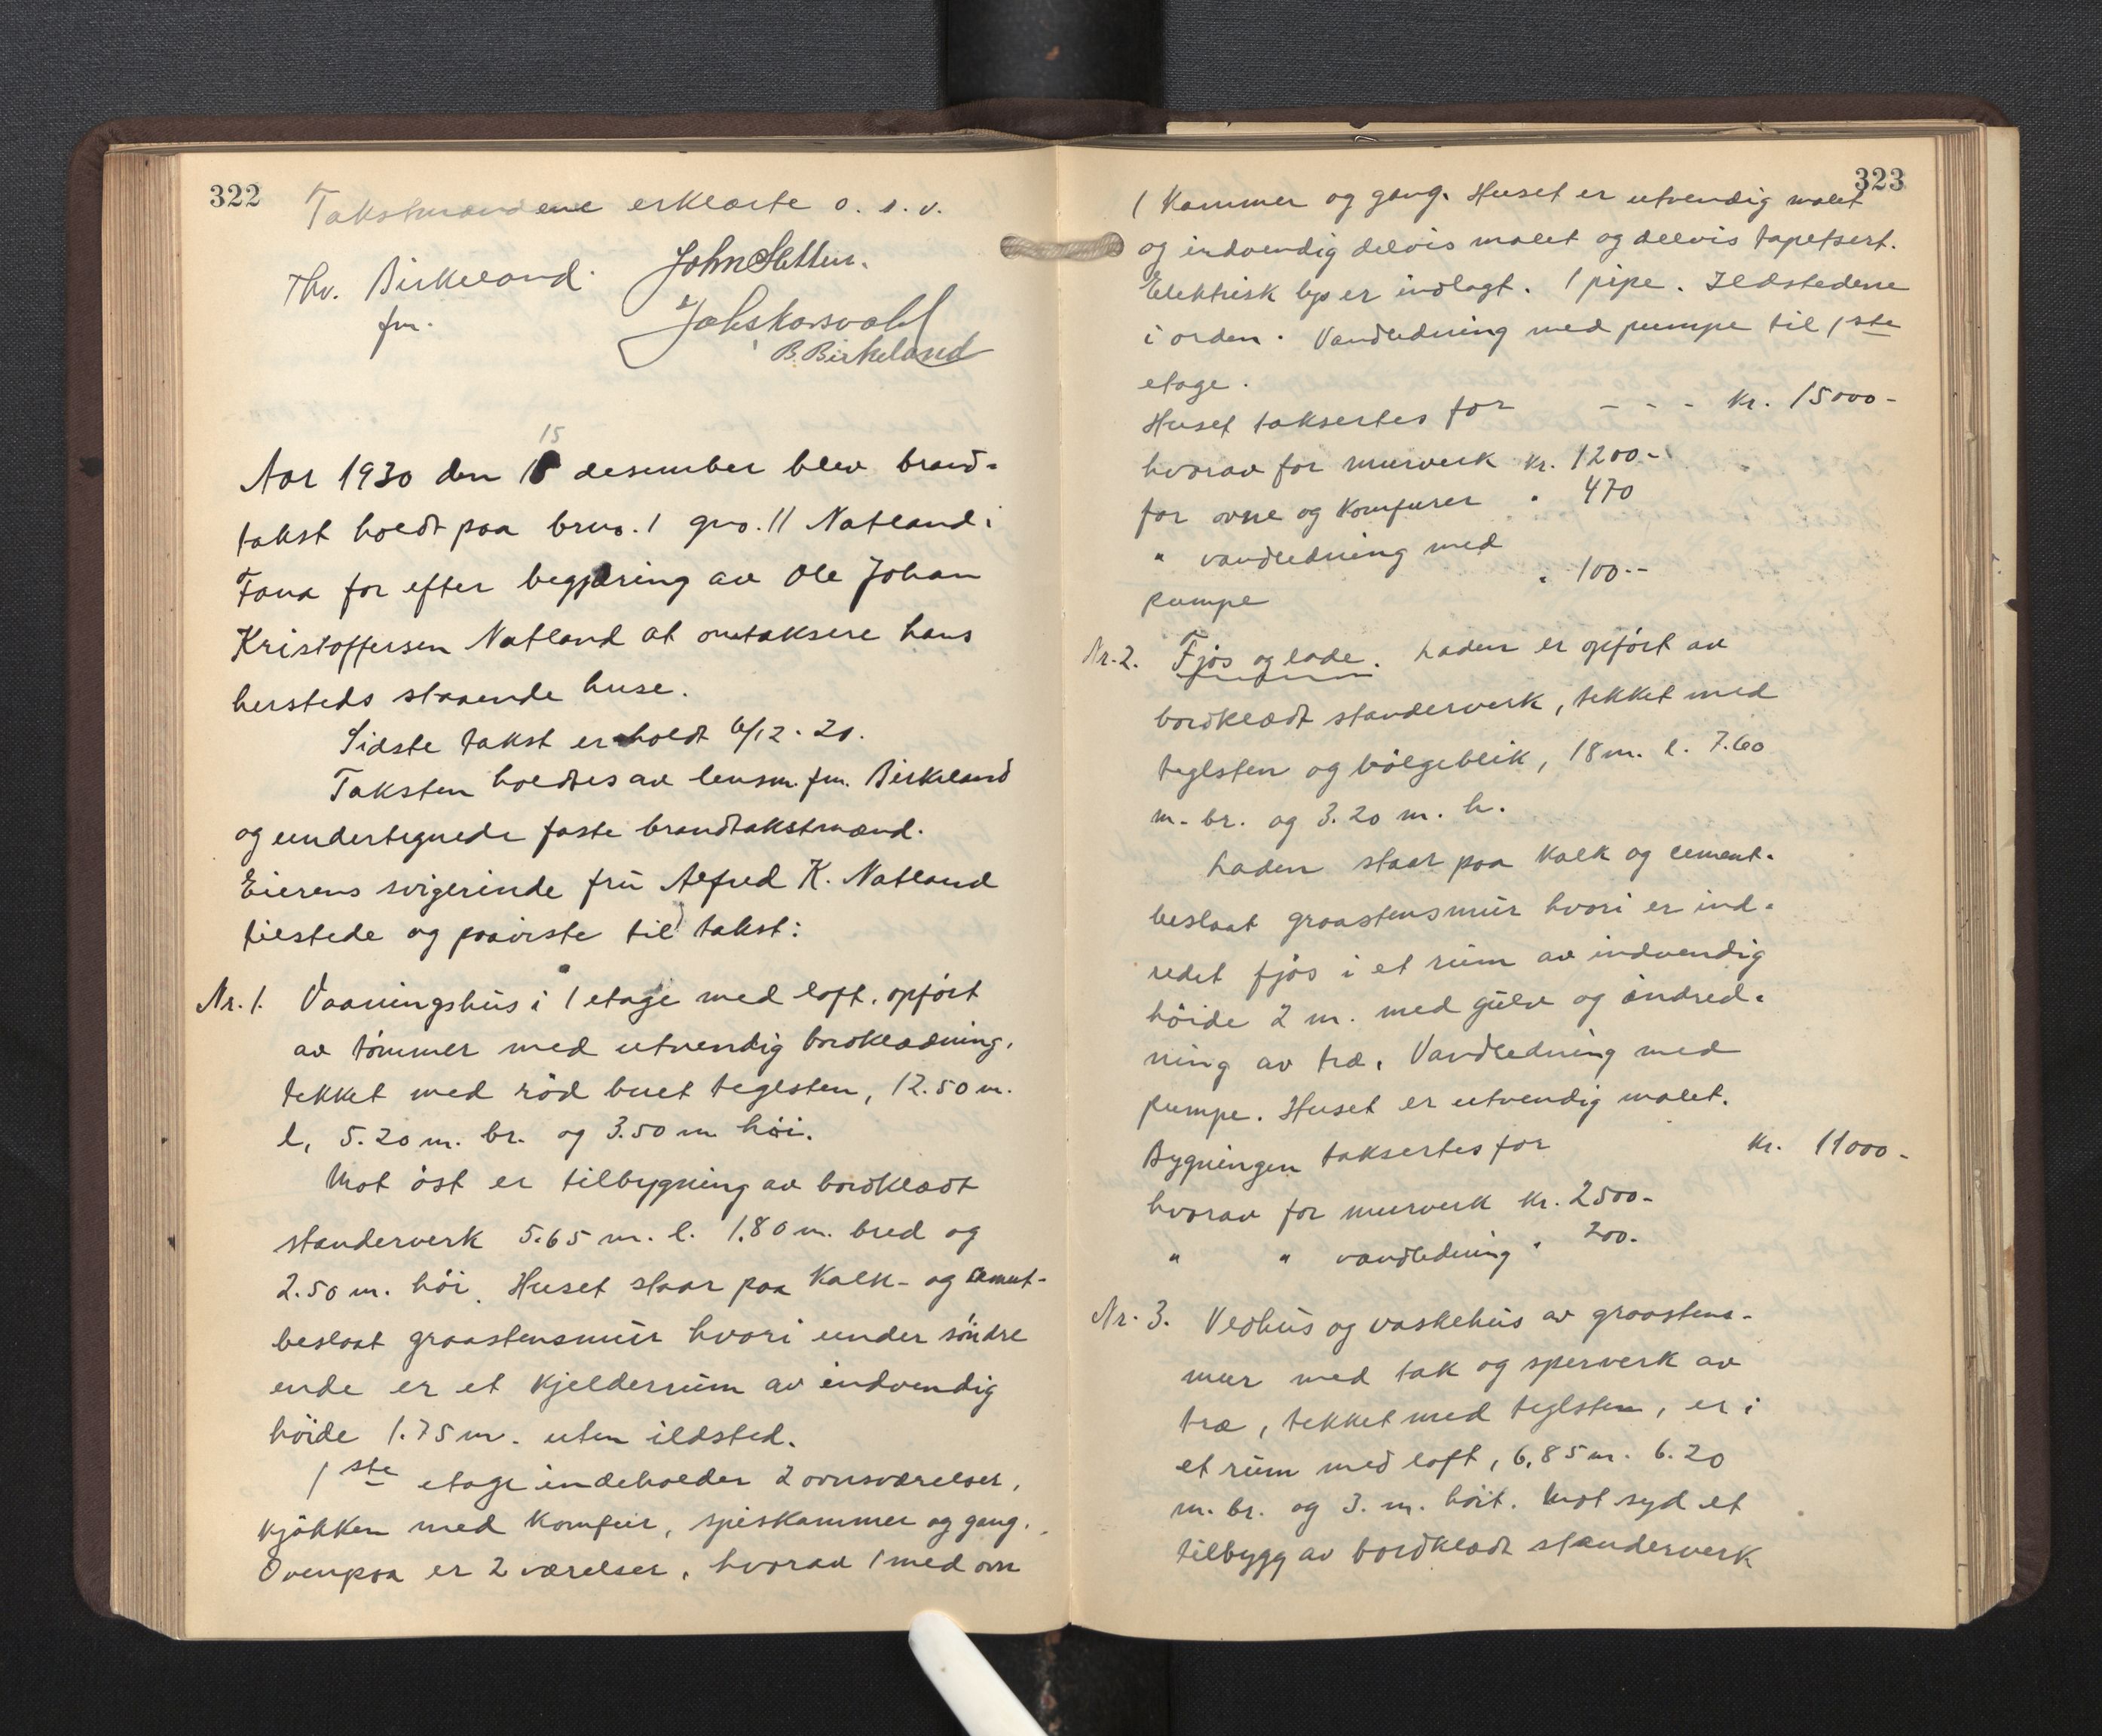 322
Takstmændene erklærte o. s. v.
Thv. Birkeland.
fm.
John Sletten.
B. Birkeland
15
Aar 1930 den 15 desember blev brand-
takst holdt paa brno. 1 gno. 11 Natland i
Fana for efter begjæring av Ole Johan
Kristoffersen Natland at omtaksere hans
hersteds staaende huse.
Sidste takst er holdt 6/12-20.
Taksten holdtes av lensm. fm. Birkeland
og undertegnede faste brandtakstmænd.
Eierens svigerinde fru Alfred K. Natland
tilstede og paaviste til takst:
Nr. 1. Vaaningshus i 1 etage med loft, opført
av tømmer med utvendig bordklædning,
tekket med rød buet teglsten, 12.50 m.
l, 5.20 m. br. og 3.50 m høi.
Mot øst er tilbygning av bordklædt
standerverk 5.65 m. l. 1.80 m. bred og
2.50 m. høi. Huset staar paa kalk- og cement-
beslaat graastensmur hvori under søndre
ende er et kjelderrum av indvendig
høide 1.75 m. uten ildsted.
1ste etage indeholder 2 ovnsværelser,
kjøkken med komfur, spiskammer og gang.
Ovenpaa er 2 værelser, hvorav 1 med ovn
323
1 kammer og gang. Huset er utvendig malet
og indvendig delvis malet og delvis tapetsert.
Elektrisk lys er indlagt. 1 pipe. Ildstedene
i orden. Vandledning med pumpe til 1ste
etage.
Huset taksertes for - - - kr. 15000-
hvorav for murverk kr. 1200-
for ovne og komfurer " 470
" vandledning med
pumpe " 100--
Nr. 2. Fjøs og lade. Laden er opført av
bordklædt standerverk, tekket med
teglsten og bølgeblik, 18 m. l. 7.60
m. br. og 3.20 m. h.
Laden staar paa kalk og cement-
beslaat graastensmur hvori er ind-
redet fjøs i et rum av indvendig
høide 2 m. med gulv og indred-
ning av træ. Vandledning med
pumpe. Huset er utvendig malet.
Bygningen taksertes for kr. 11000-
hvorav for murverk kr. 2500-
" " vandledning " 200-
Nr. 3. Vedhus og vaskehus av graastens-
mur med tak og sperverk av
træ, tekket med teglsten, er i
et rum med loft, 6,85 m. 6.20
m. br. og 3. m. høit. Mot syd et
tilbygg av bordklædt standerverk